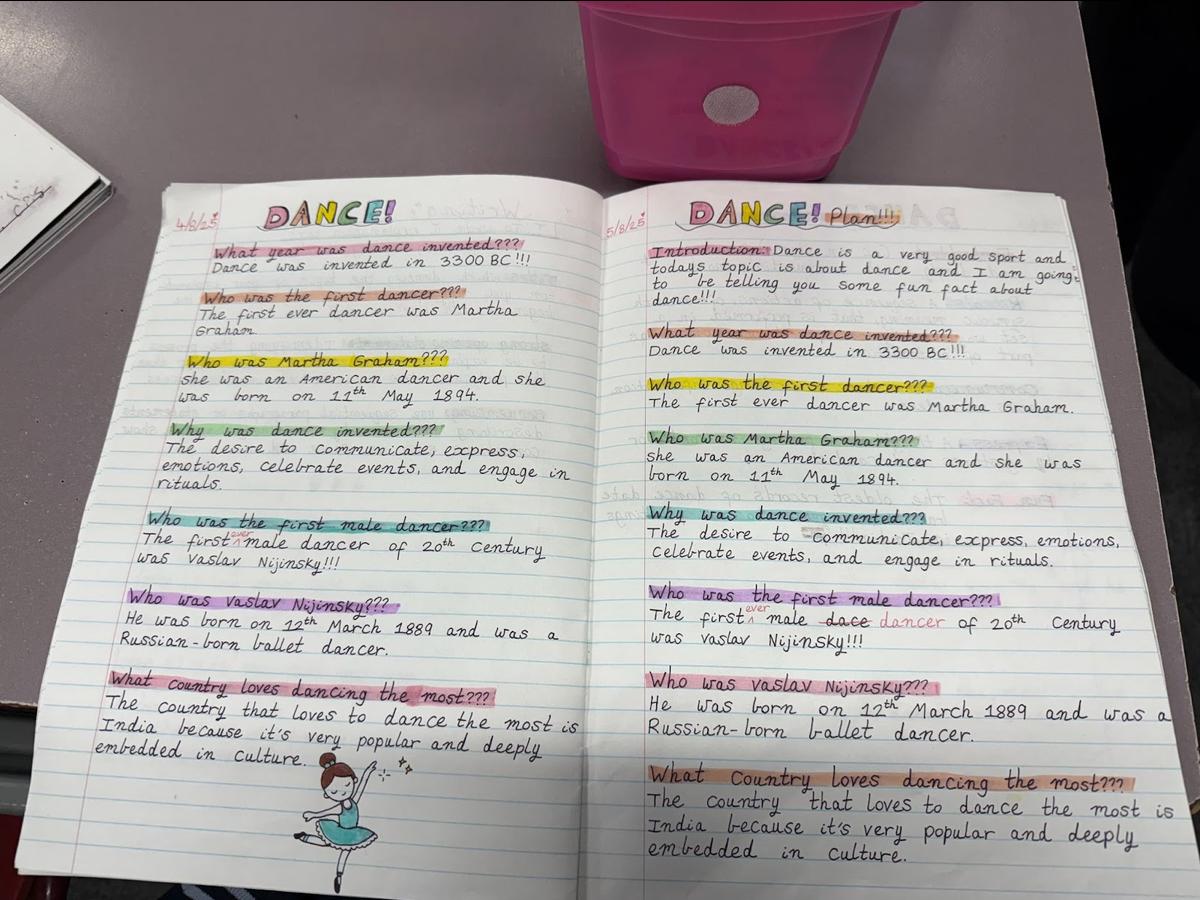 4/8/25
DANCE!
What year was dance invented???
Dance was invented in 3300 BC!!!
Who was the first dancer???
The first ever dancer was Martha
Graham.
Who was Martha Graham???
she was an American dancer and she
was born on 11th May 1894.
Why was dance invented???
The desire to communicate, express,
emotions, celebrate events, and engage in
rituals.
Who was the first male dancer???
The first ever male dancer of 20th Century
was vaslav Nijinsky!!!
Who was vaslav Nijinsky???
He was born on 12th March 1889 and was a
Russian-born ballet dancer.
What country loves dancing the most???
The country that loves to dance the most is
India because it's very popular and deeply
embedded in culture.
5/8/25
DANCE! Plan!!!
Introduction: Dance is a very good sport and
todays topic is about dance and I am going
to be telling you some fun fact about
dance!!!
What year was dance invented???
Dance was invented in 3300 BC!!!
Who was the first dancer???
The first ever dancer was Martha Graham.
Who was Martha Graham???
she was an American dancer and she was
born on 11th May 1894.
Why was dance invented???
The desire to communicate, express, emotions,
celebrate events, and engage in rituals.
Who was the first male dancer???
The first ever male dace dancer of 20th Century
was vaslav Nijinsky!!!
Who was vaslav Nijinsky???
He was born on 12th March 1889 and was a
Russian-born ballet dancer.
What Country loves dancing the most???
The country that loves to dance the most is
India because it's very popular and deeply
embedded in culture.